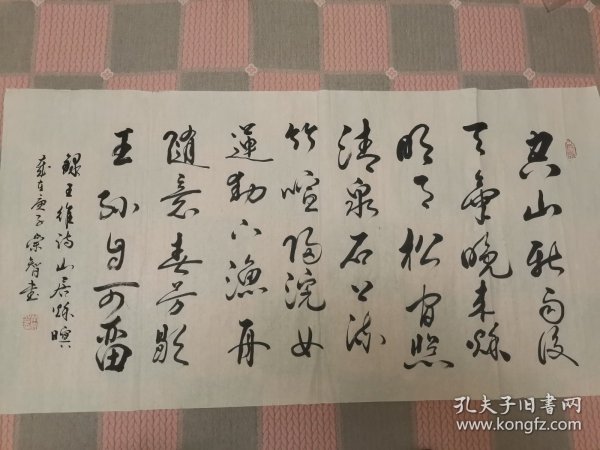 空山新雨後
天氣晚来秋
明月松間照
清泉石上流
竹喧歸浣女
蓮動下漁舟
隨意春芳歇
王孫自可留
録王維诗山居秋暝
歲在庚子崇智書
孔夫子旧书网
www.kongfz.com